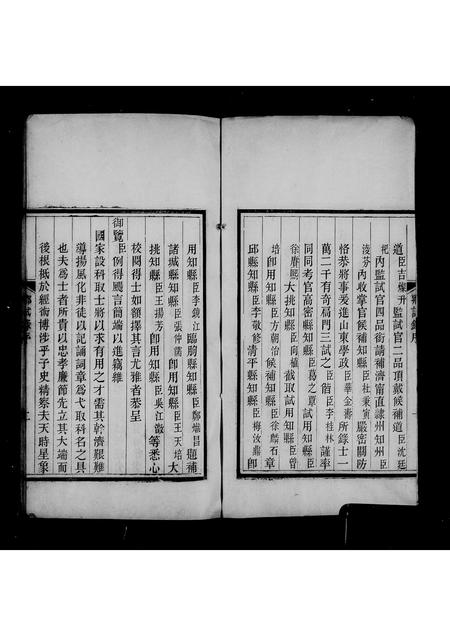 道臣吉燦升監試官二品頂戴候補道臣沈廷
杞內監試官四品銜請補濟甯直隸州知州臣
凌芬內收掌官候補知縣臣杜秉寅嚴密關防
恪恭將事爰進山東學政臣華金壽所錄士一
萬二千有奇扃門三試之臣詒臣李桂林謹率
同同考官高密縣知縣臣葛之覃試用知縣臣
徐賡熙大挑知縣臣向植截取試用知縣臣曾
培卽用知縣臣方朝治候補知縣臣徐麟石章
邱縣知縣臣李敬修清平縣知縣臣梅汝鼎卽
用知縣臣李鏡江臨朐縣知縣臣鄭
昌題補
諸城縣知縣臣張
卽用知縣臣王天培大
挑知縣臣王揚芳卽用知縣臣吳江
等悉心
校閱得士如額擇其言尤雅者恭呈
御覽臣例得颺言簡端以進竊維
國家設科取士將以求有用之才需其幹濟艱難
導揚風化非徒以記誦詞章爲弋取科名之具
也夫爲士者所貴以忠孝廉節先立其大端而
後根柢於經術博涉乎子史精察夫天時星象